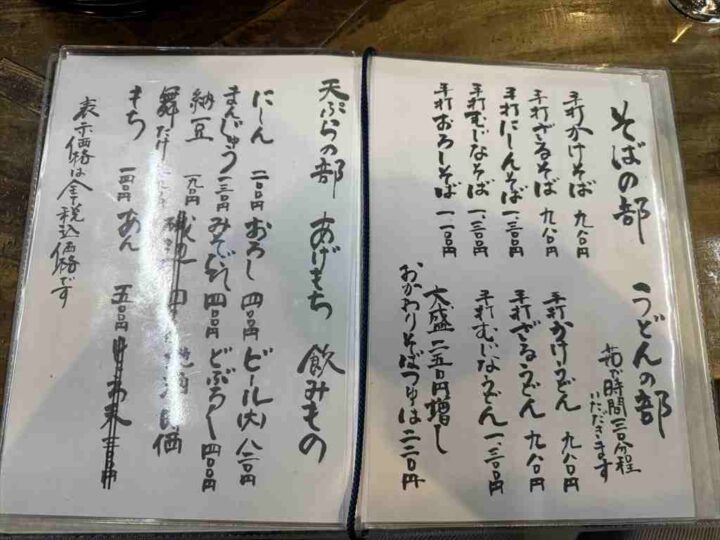 そばの部
手打かけそば 九八〇円
手打ざるそば 九八〇円
手打にしんそば 一、三〇〇円
手打むじなそば 一、三〇〇円
手打おろしそば 一、一〇〇円
うどんの部
茹で時間三〇分程
いただきます
手打かけうどん 九八〇円
手打ざるうどん 九八〇円
手打むじなうどん 一、三〇〇円
大盛二五〇円増し
おかわりそばつゆは二二〇円
天ぷらの部
にしん 二〇〇円
まんじゅう 一三〇円
納豆 一九〇円
舞たけ
もち 一四〇円
あげもち
おろし 四〇〇円
みぞれ 四〇〇円
あん 五〇〇円
飲みもの
ビール(大) 八二〇円
どぶろく 四〇〇円
表示価格は全て税込価格です